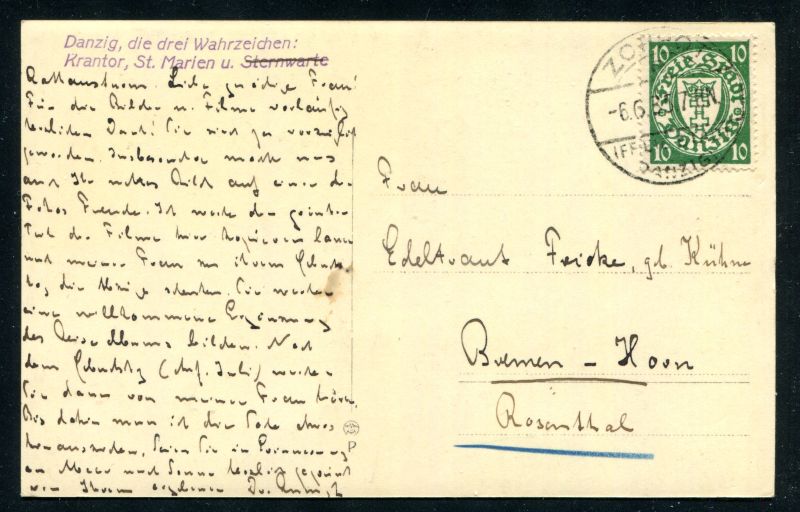 Danzig, die drei Wahrzeichen:
Krantor, St. Marien u. Sternwarte
Rathausturm. Liebe gnädige Frau!
Für die Bilder u. Filme vorläufig
herzlichen Dank! Sie sind ja vorzüglich
geworden. Insbesondere macht uns
auch Ihr nettes Bild auf einer der
Fotos Freude. Ich werde den
Teil der Filme hier kopieren lassen
und meiner Frau zu ihrem Geburts-
tag die Abzüge schenken. Sie werden
eine willkommene Ergänzung
des Reisealbums bilden. Nach
dem Geburtstag (Anf. Juli) werden
Sie dann von meiner Frau hören.
Bis dahin muss ich die Sache etwas
hinauszögern. Seien Sie in Erinnerung
an Meer und Sonne herzlich gegrüsst
von Ihrem ergebenen Dr.
P
ZOPPOT
-6.6
DANZIG
10 10
Freie Stadt
Danzig
10 10
Frau
Edeltraut Fricke, geb. Kühne
Bremen - Horn
Rosenthal